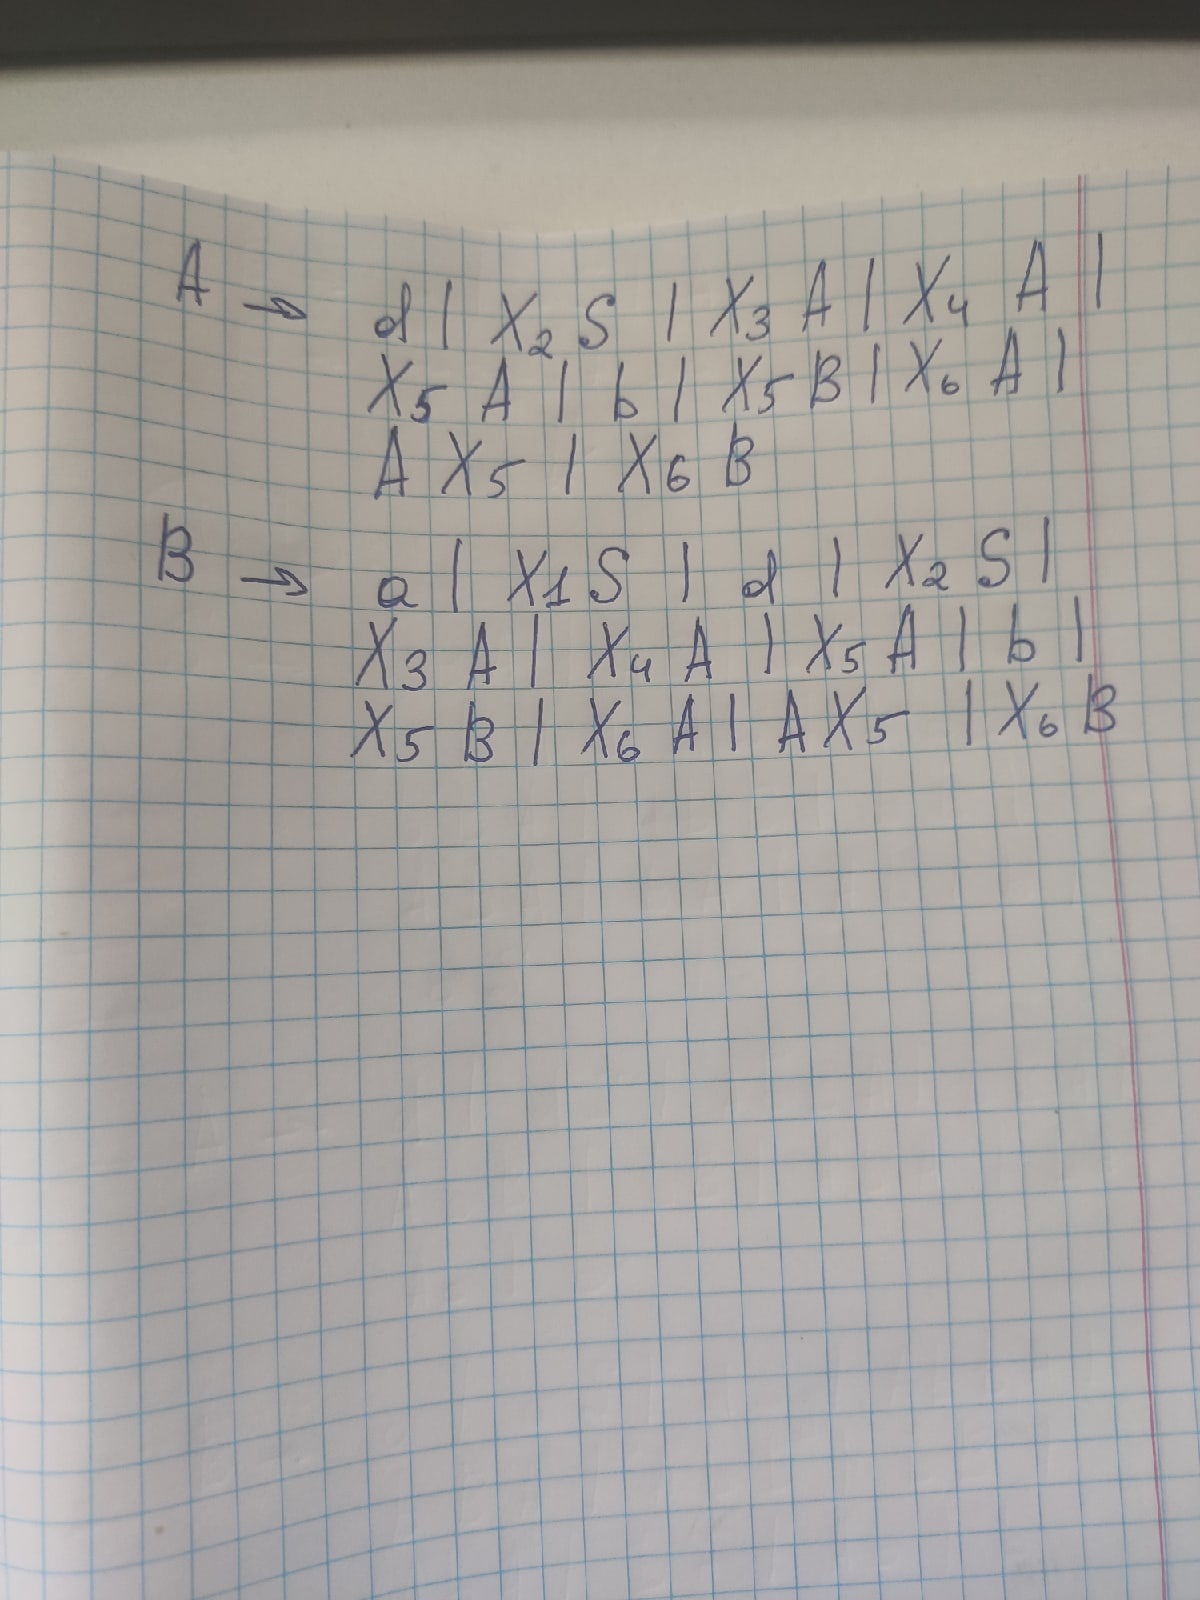 A → d | X₂ S | X₃ A | X₄ A |
X₅ A | b | X₅ B | X₆ A |
A X₅ | X₆ B
B → a | X1 S | d | X₂ S |
X₃ A | X₄ A | X₅ A | b |
X₅ B | X₆ A | A X₅ | X₆ B